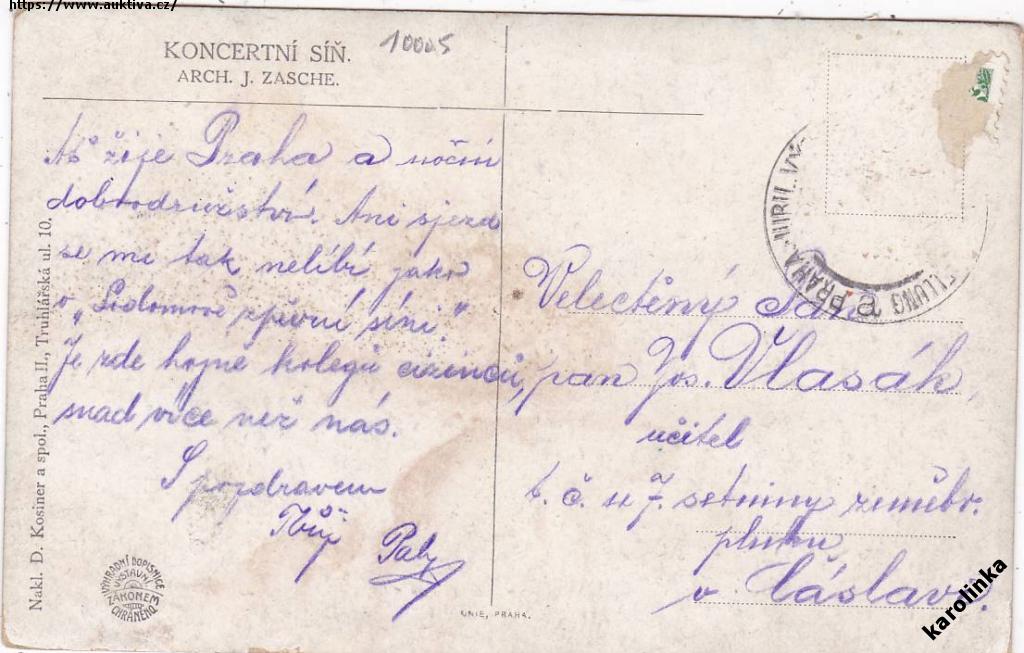 https://www.auktiva.cz/
KONCERTNÍ SÍŇ.
ARCH. J. ZASCHE.
10005
Ať žije Praha a noční
dobrodružství. Ani sjezd
se mi tak nelíbí jako
v „ zpěvní síni."
Je zde hojně kolegů cizinců,
snad více než nás.
S pozdravem
Tvůj
Velectěný Pán
pan Jos. Vlasák,
učitel
t. č. u 7. setniny zeměbr.
pluku
v Čáslavi.
PRAHA
Nakl. D. Kosiner a spol., Praha II., Truhlářská ul. 10.
VÝHRADNÍ DOPISNICE
VÝSTAVNÍ
ZÁKONEM
CHRÁNĚNO
UNIE, PRAHA.
karolinka